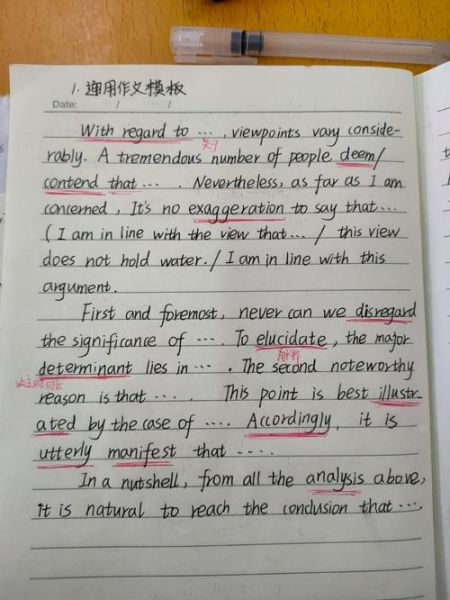 1. 通用作文模板
Date: / /
With regard to ···, viewpoints vary conside-
关于
rably. A tremendous number of people deem/
contend that ···. Nevertheless, as far as I am
concerned, It's no exaggeration to say that ···
( I am in line with the view that ··· / this view
does not hold water. / I am in line with this
argument.
First and foremost, never can we disregard
the significance of ···. To elucidate, the major
解释
determinant lies in ···. The second noteworthy
reason is that ····. This point is best illustr-
ated by the case of ····. Accordingly, it is
utterly manifest that ····.
In a nutshell, from all the analysis above,
it is natural to reach the conclusion that ···,